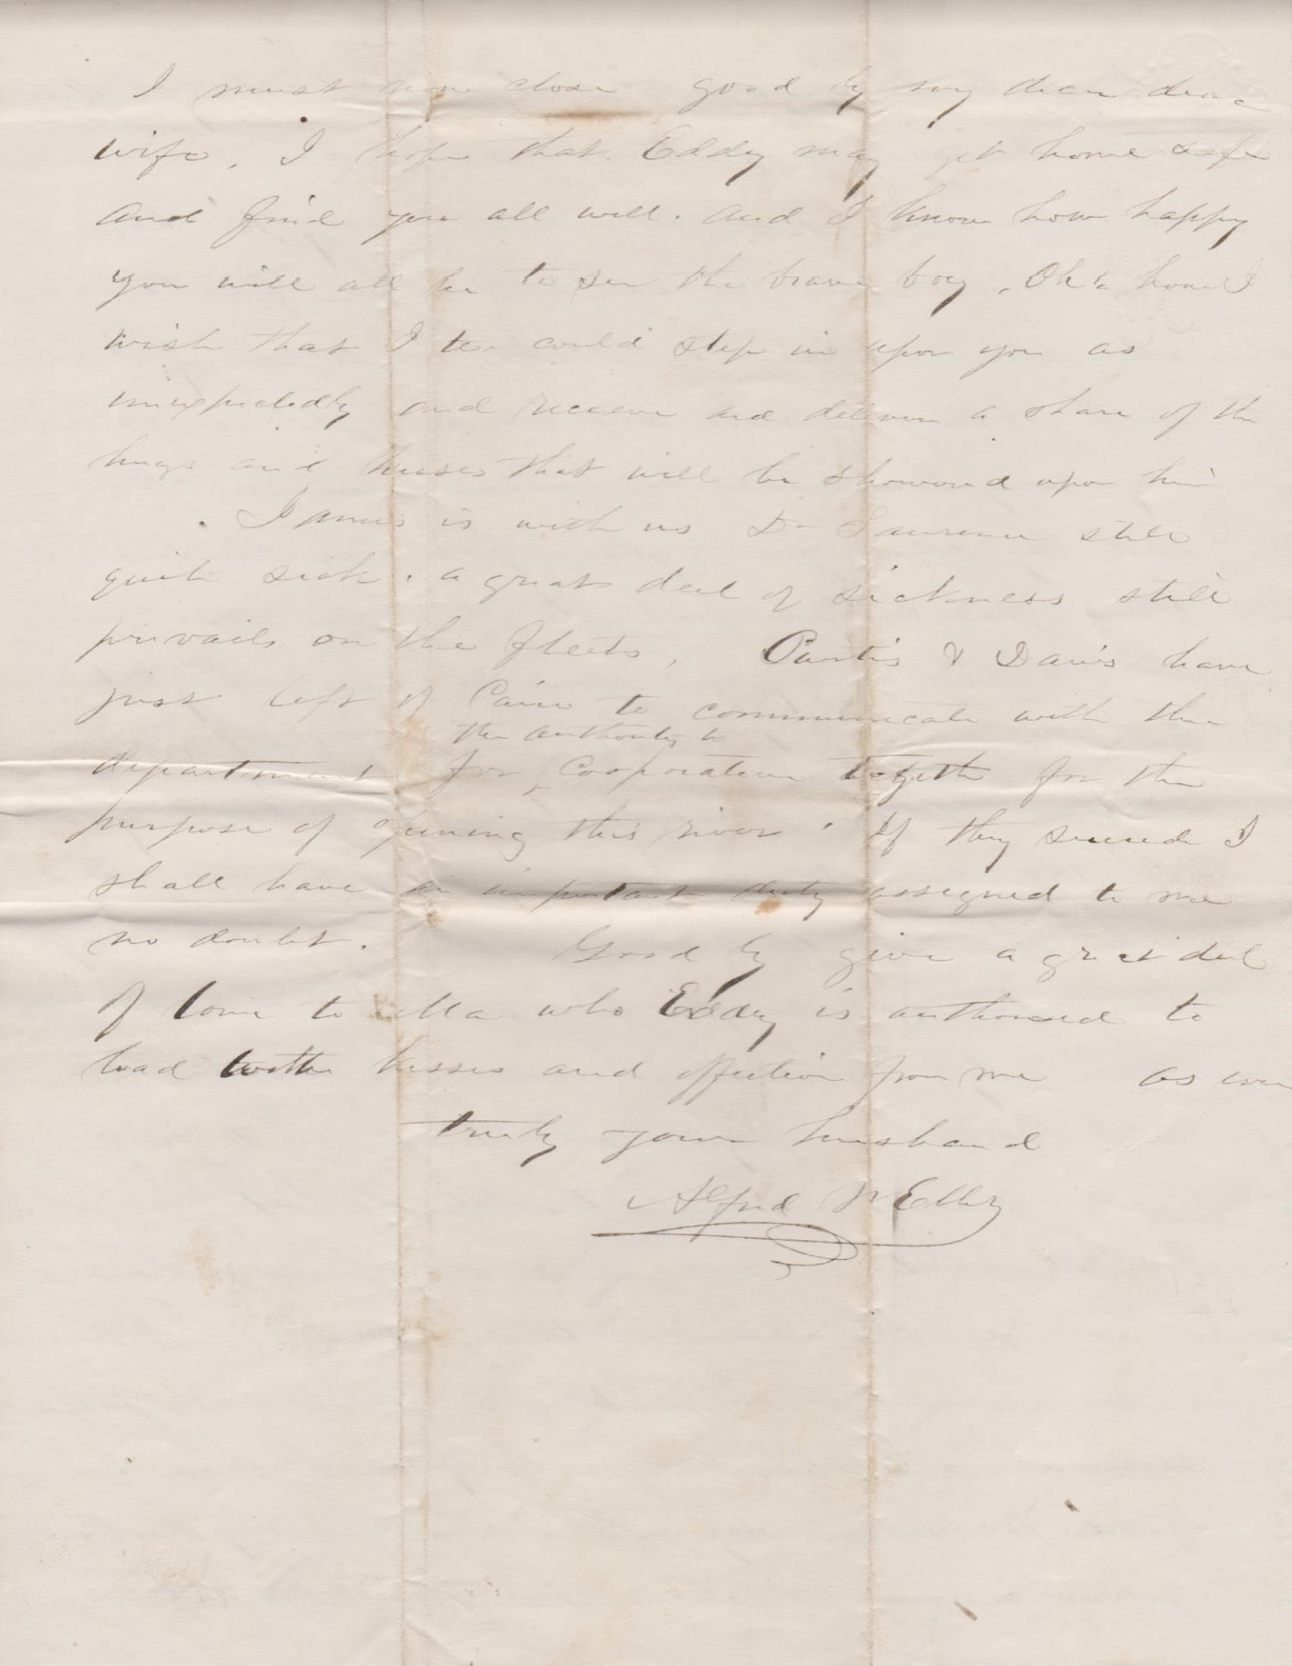 I must now close good by my dear dear
wife, I hope that Eddy may get home safe
and find you all well. And I know how happy
you will all be to see the brave boy, Oh how I
wish that I too could step in upon you as
unexpectedly and receive and deliver a share of the
hugs and kisses that will be showered upon him
James is with us Dr Lawrence still
quite sick. a great deal of sickness still
prevails on the fleets, Curtis & Davis have
just left for Cairo to communicate with the
the authority to
department for ^ Cooperation together for the
purpose of opening this river. If they succeed I
shall have an important duty assigned to me
no doubt. Good by give a great deal
of love to Ma who Eddy is authorised to
load with kisses and affection from me as ever
truly your husband
Alfred W Ellet